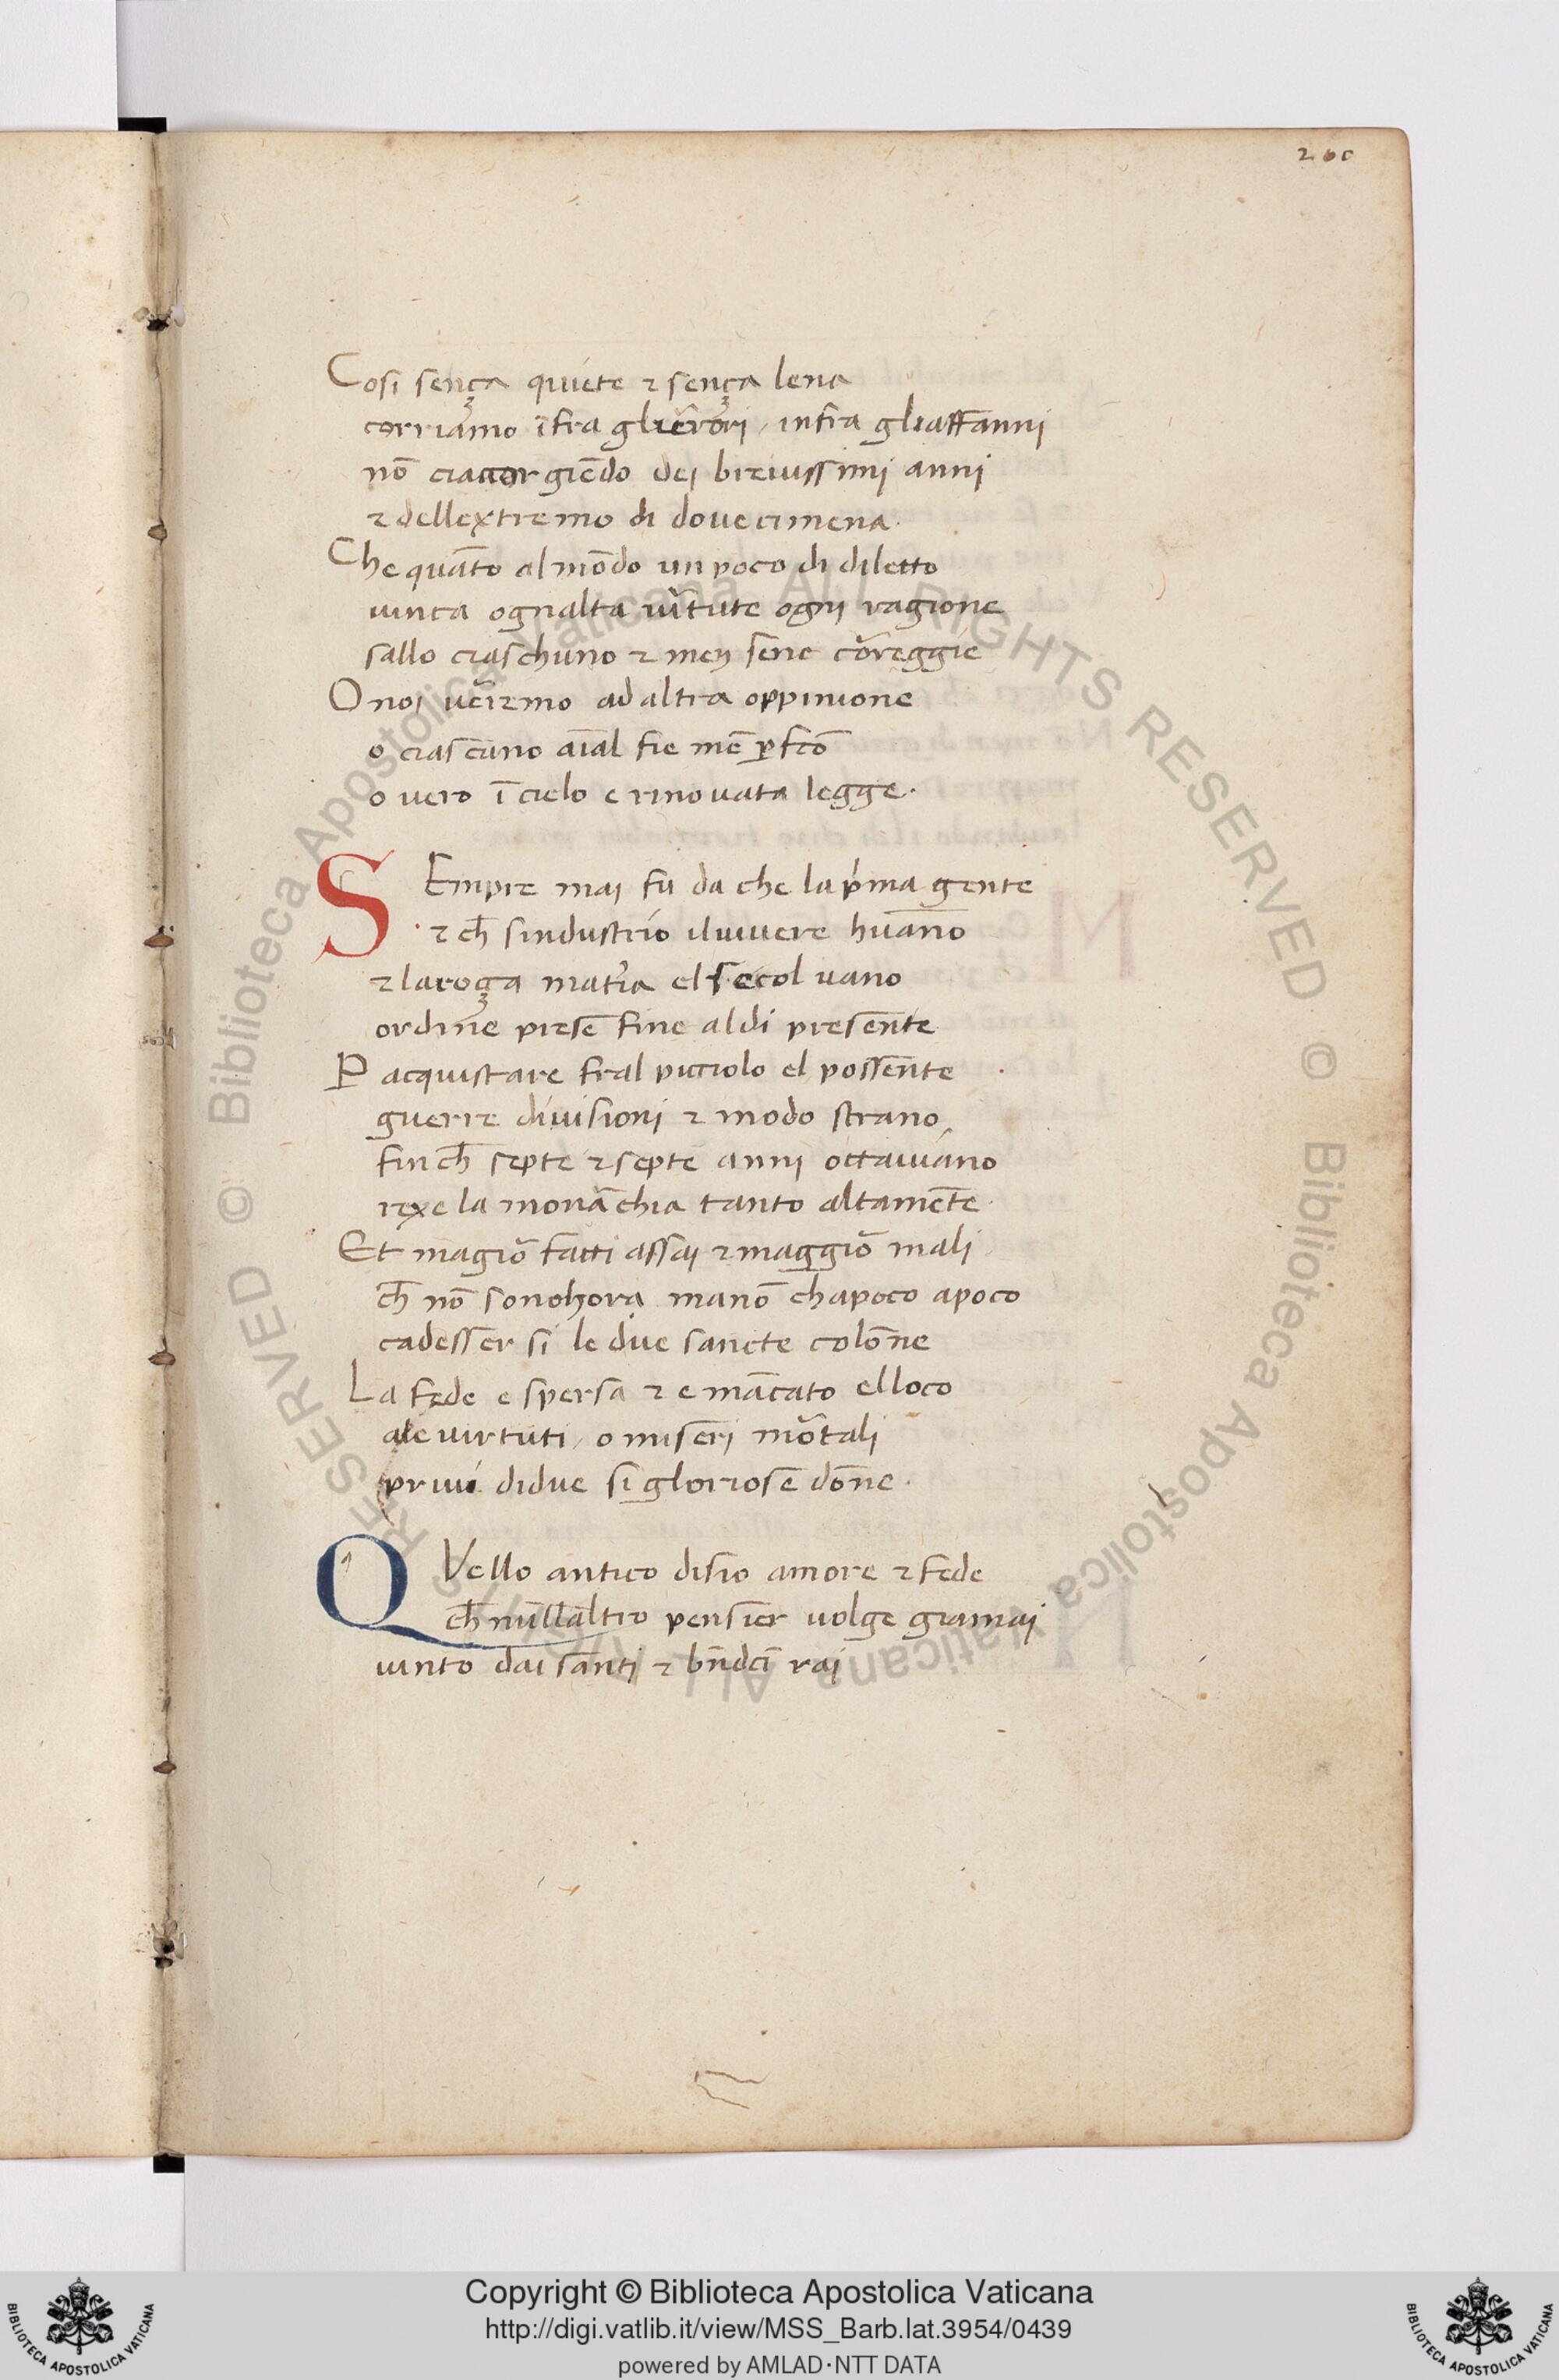 200
Cosi sença quiete ⁊ sença lena
corriamo īfra glierrori / infra gliaffanni
nō ciaccorgiēdo dei brevissimi anni
⁊ dellextremo di dove cimena.
Che quāto al mōdo un poco di diletto
vinca ognalta virtute ogni ragione
sallo ciaschuno ⁊
O noi ad altra oppinione
o ciascuno aīal fie mē ꝑfcō
o vero ī cielo e rinovata legge.
S Empre mai fu da che la pͥma gente
⁊ cħ sindustrio iluivere huāno
⁊ laroça matͥia el secol vano
ordine presē fine aldi presēnte
Ꝑ acquistare fral picciolo el possente
guerre divisioni ⁊ modo strano
fin cħ septe ⁊ septe anni octaviano
rexe la monārchia tanto altamēte.
Et magiō facti assai ⁊ maggiō mali
cħ nō sonohora manō chapoco apoco
cadesser si le due sancte colōne
La fede e spersa ⁊ e mācato elloco
ale virtuti / o miseri mortali
privi didue si gloriose dōne.
Q Vello antico disio amore ⁊ fede
cħ nullaltro pensier volge giamai
vinto dai santi ⁊ bn̄dcī rai
Copyright © Biblioteca Apostolica Vaticana
http://digi.vatlib.it/view/MSS_Barb.lat.3954/0439
powered by AMLAD·NTT DATA